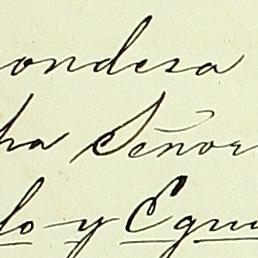 ondesa
ha Señor
lo y Egu